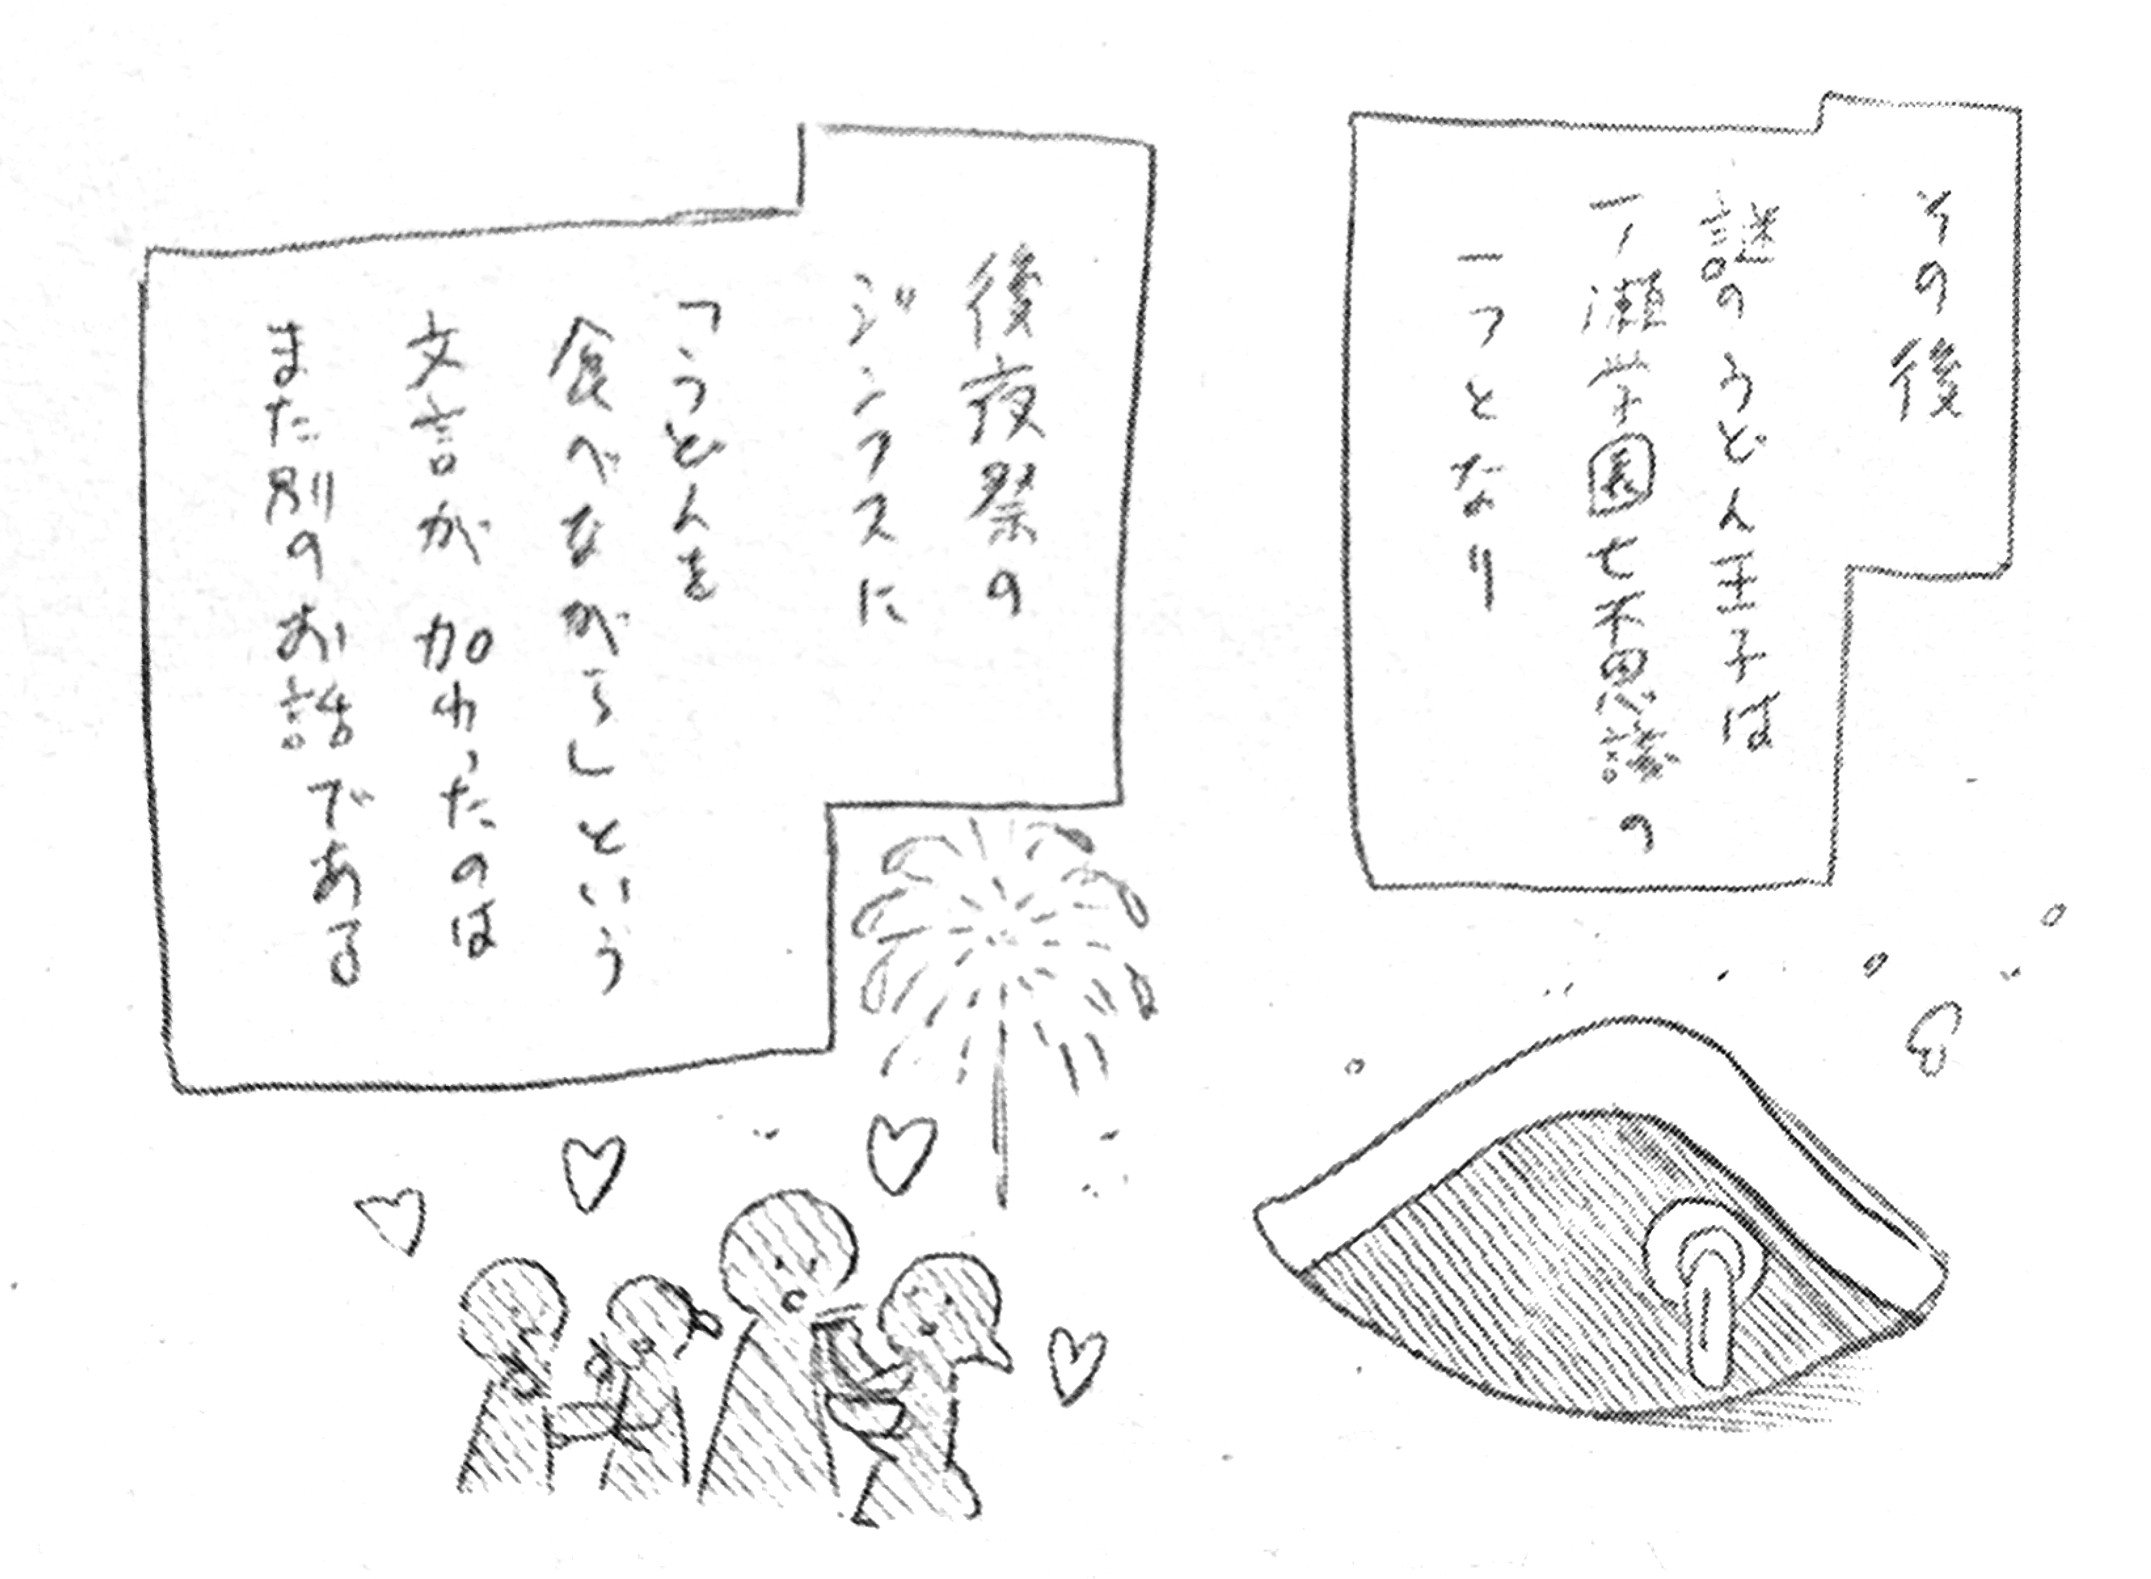 その後
謎のうどん王子は
一ノ瀬学園七不思議の
一つとなり
後夜祭の
ジンクスに
「うどんを
食べながら」という
文言が加わったのは
また別のお話である